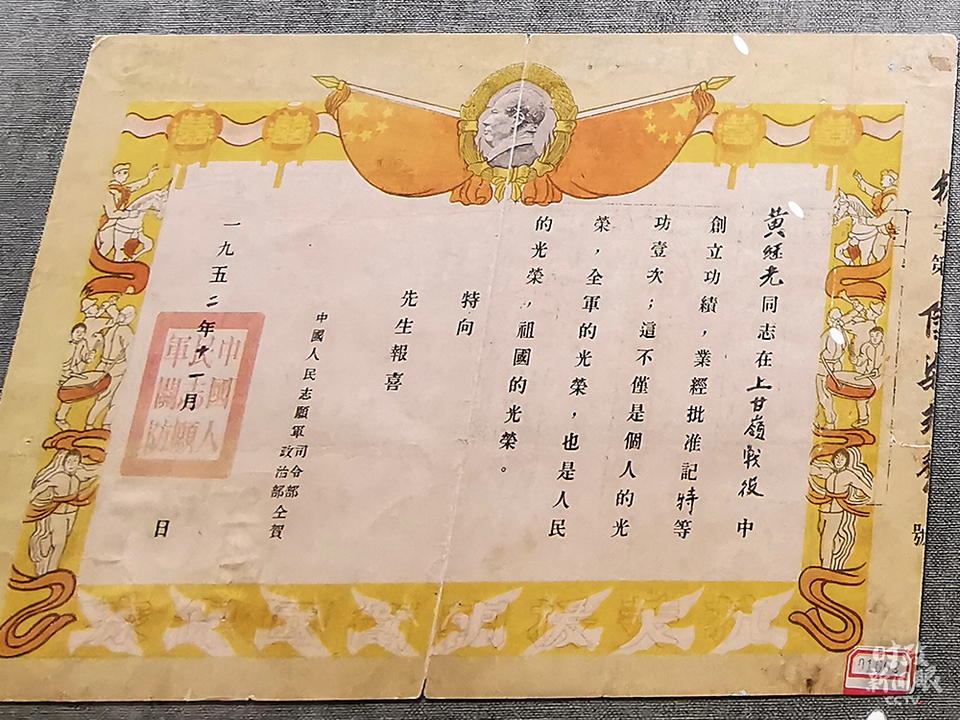 黃继光同志在上甘嶺戰役中
創立功績，業經批准記特等
功壹次；這不僅是個人的光
榮，全軍的光榮，也是人民
的光榮，祖國的光榮。
特向
先生報喜
中國人民志願軍司令部
政治部仝賀
一九五二年十一月
日
中國人
民志願
軍關防
號
01053
CCTV